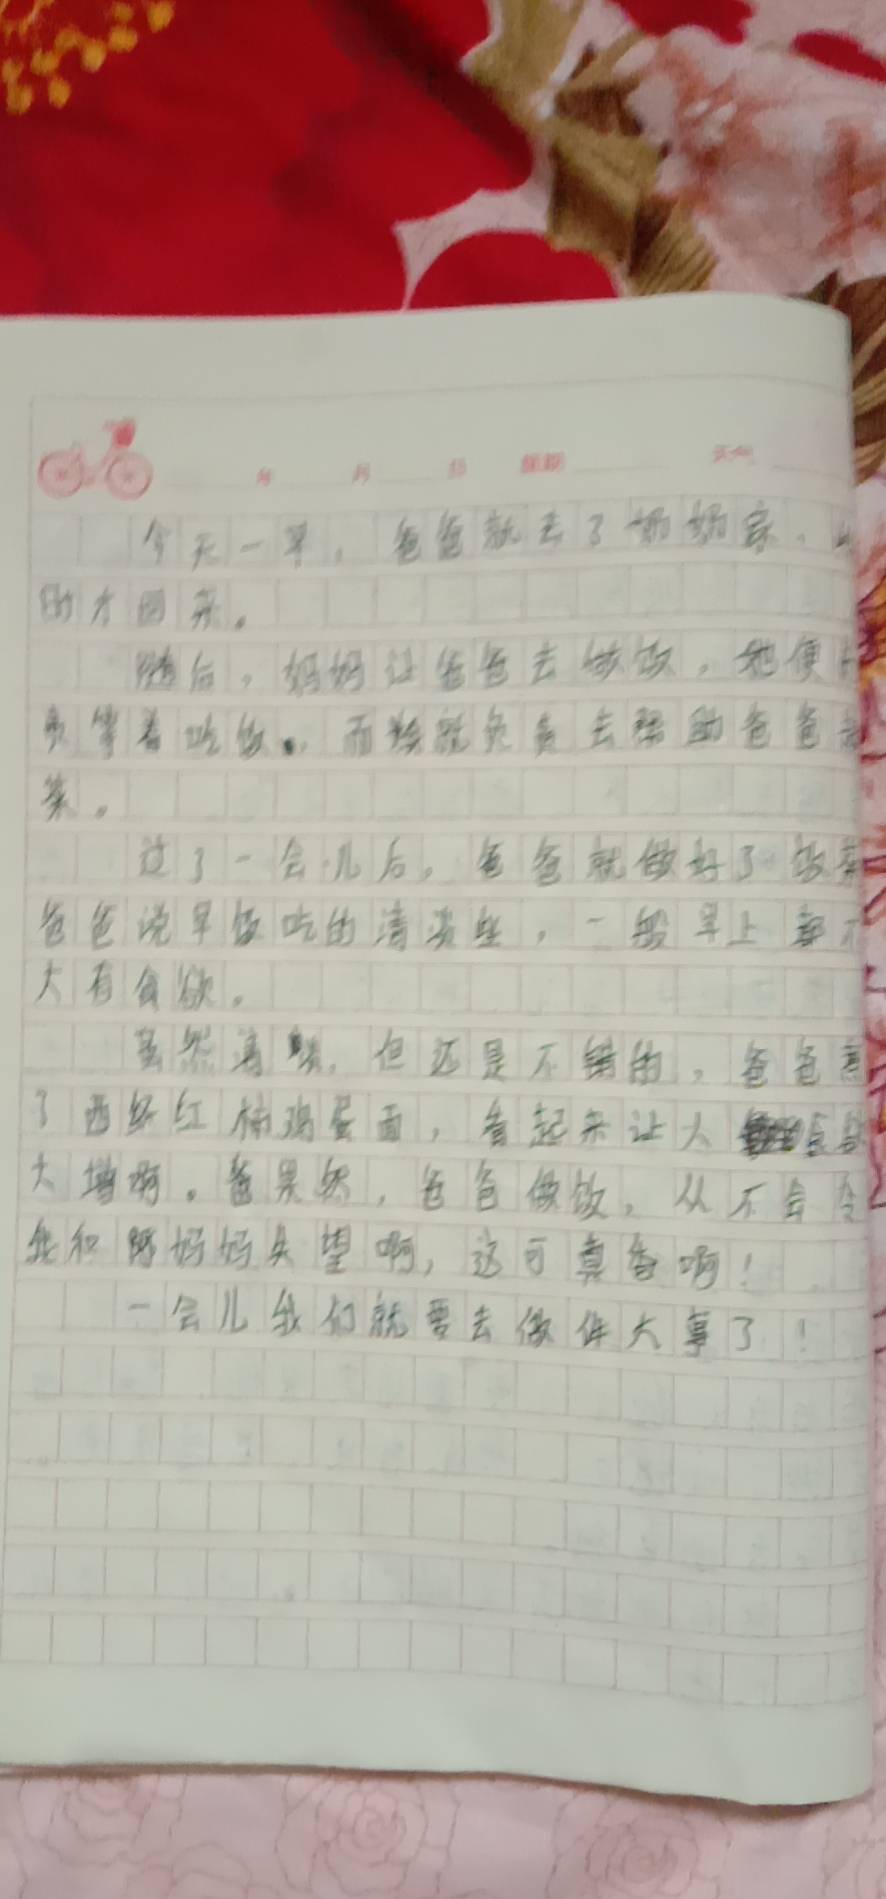 年 月 日 星期 天气
今天一早，爸爸就去了奶奶家，
时才回来。
随后，妈妈让爸爸去做饭，她便
责等着吃饭，而我就负责去帮助爸爸
菜。
过了一会儿后，爸爸就做好了饭菜
爸爸说早饭吃的清淡些，一般早上都不
大有食欲。
虽然清淡，但还是不错的，爸爸煮
了西红柿鸡蛋面，看起来让人食欲
大增啊。果然，爸爸做饭，从不会令
我和妈妈失望啊，这可真香啊！
一会儿我们就要去做件大事了！